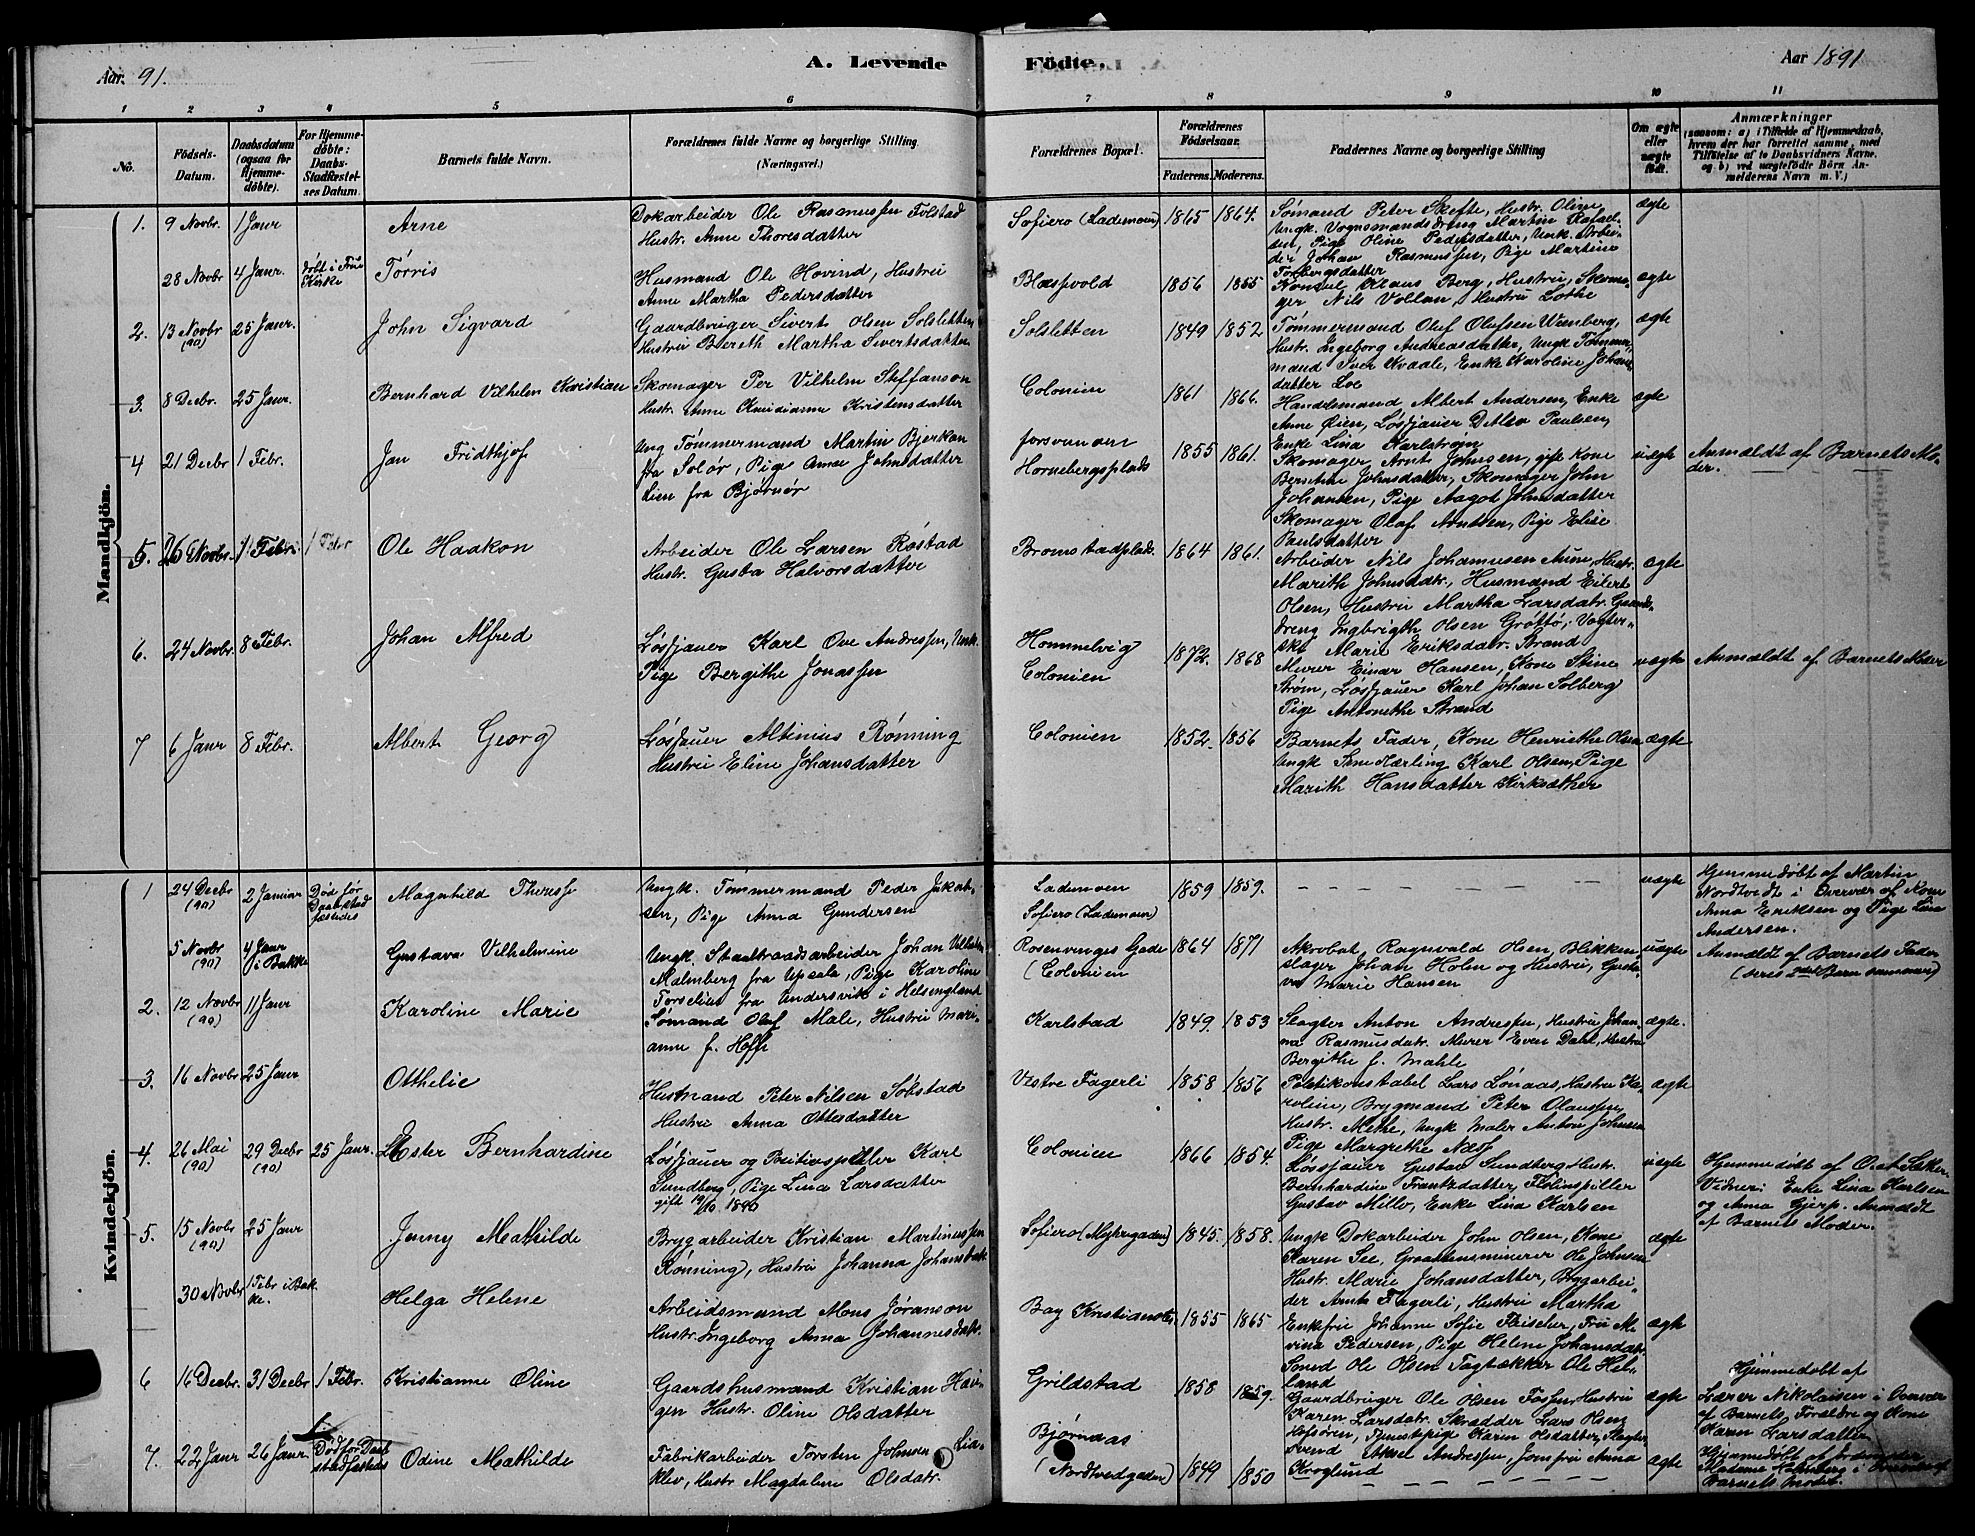 Aar. 91.
A. Levende
Födte.
Aar 1891
1 2 3 4 5 6 7 8 9 10 11
No.
Födsels-Datum.
Daabsdatum (ogsaa for Hjemme-döbte).
For Hjemme-döbte: Daabs-Stadfæstel-ses Datum.
Barnets fulde Navn.
Forældrenes fulde Navne og borgerlige Stilling (Næringsvei.)
Forældrenes Bopæl.
Forældrenes Födselsaar.
Faderens. Moderens.
Faddernes Navne og borgerlige Stilling
Om ægte eller uægte födt.
Anmærkninger
(saasom: a) i Tilfælde af Hjemmedaab, hvem der har forrettet samme, med Tilföielse af to Daabsvidners Navne, og b) ved uægtefödte Börn Anmelderens Navn m. V.)
Mandkjön.
1. 9 Novbr. 1 Janr Arne
Dokarbeider Ole Rasmussen Tolstad
Hustr. Anne Thoresdatter
Sofiero (Lademoen) 1865 1864.
Sømand Peter Skefte, Hustr. Oline,
Ungk. Vognmandsdreng Martin Rafael-
sen, Pige Oline Pedersdatter, Unk. Arbei-
der Johan Rasmussen, Pige Martine
Torbergsdatter
ægte
28 Novbr 4 Janr. døbt i Frue Kirke Tørris
Husmand Ole Hovind, Hustru
Anne Martha Pedersdatter
Blæsevold 1856 1855
Konsul Claus Berg, Hustru, Skoma-
ger Nils Vollan, Hustru Lothe
ægte
2. 13 Novbr (90) 25 Janr. John Sigvard
Gaardbruger Sivert Olsen Solsletten
Hustru Bereth Martha Sivertsdatter
Solsletten 1849 1852
Tømmermand Oluf Olufsen Wenberg,
Hustr. Ingeborg Andreasdatter, Ungk Tømmer-
mand Iver Kvaale, Enke Karoline Johans-
datter Loe
ægte
3. 8 Decbr. 25 Janr. Bernhard Vilhelm Kristian
Skomager Per Vilhelm Steffanson
Hustr. Anne Kristensdatter
Colonien 1861 1866.
Handelsmand Albert Andersen, Enke
Anne Øien, Løsfjauer Detlev Paulsen,
Enke Lina Karlstrøm
ægte
4 21 Decbr 1 Febr. Jan Fridthjof
Ung Tømmermand Martin Bjerkan
fra Solør, Pige Anne Johnsdatter
Lien fra Bjørnør
forsvunden
Hornebergsplads 1855 1861.
Skomager Arnt Johnsen, gift Kone
Johnsdatter, Skomager John
Johansen, Pige Aagot Johnsdatter
Skomager Olaf Arntsen, Pige Elise
Paulsdatter
uægte
Anmældt af Barnets Mo-
der.
5. 26 Novbr. 1 Febr. 1 Febr Ole Haakon
Arbeider Ole Larsen Røstad
Hustr. Gusta Halvorsdatter
Bromstadplads. 1864 1861.
Arbeider Nils Johannesen Aune, Hustr.
Marith Johnsdatr., Husmand Eilert
Olsen, Hustru Martha Larsdatr. Gaard-
dreng Ingbrigth Olsen Grøttø, Vogter-
ske Marie Eriksdatr. Brand
ægte
6. 24 Novbr. 8 Febr. Johan Alfred
Løsfjauer Karl Ove Andressen, Unk.
Pige Bergithe Jonassen
Hommelvig
Colonien 1872. 1868
Murer Einar Hansen, Kone Stine
Strøm, Løsfjauer Karl Johan Solberg
Pige Antonethe Strand
uægte
Anmældt af Barnets Moder
7 6 Janr 8 Febr. Albert Georg
Løsfauer Altinius Rønning
Hustru Eline Johansdatter
Colonien 1852. 1856
Barnets Fader, Kone Henriethe Olsen
Ungk Smedlærling Karl Olsen, Pige
Marith Hansdatter Kirksæther
ægte
Kvindekjön.
1 24 Decbr (90) 2 Januar Død før Daabsstad fæstedes Magnhild Therese
Ungk. Tømmermand Peder Jakob-
sen, Pige Anna Gundersen
Lademoen
Sofiero (Lademoen) 1859 1859.
uægte
Hjemmedøbt af Martin
Nordtvedt i Overvær af Kone
Anna Eriksen og Pige Lina
Andersen.
5 Novbr (90) 4 Janr i Bakke Gustava Vilhelmine
Ungk. Staaltraadsarbeider Johan Vilhelm
Malmberg fra Upsala, Pige Karoline
Torselius fra Undersvik i Helsengland
Rosenvinges Gade
(Colonien 1864 1871
Akrobat, Ragnvald Olsen, Blikken-
slager Johan Holm og Hustru, Gusta-
va Marie Hansen
uægte
Anmældt af Barnets Fader
2. 12 Novbr (90) 11 Janr Karoline Marie
Sømand Oluf Male, Hustru Mari-
anne f. Hoff
Karlstad 1849. 1853
Slagter Anton Andressen, Hustru Johan-
na Rasmusdatr. Murer Even Dahl, Hustru
Bergithe f. Mahle
ægte.
3. 16 Novbr 25 Janr Otthelie
Husmand Peter Nilsen Søbstad
Hustru Anna Ottesdatter
Vestre Fagerli 1858 1856
Politikonstabel Lars Lønaas, Hustru Ka-
roline, Brygmand Peter Olaussen,
Hustr. Methe, Ungk Maler Anton Johnsen
Pige Margrethe Næss
ægte
4. 26 Mai (90) 29 Decbr (90) 25 Janr. Ester Bernhardine
Løsfjauer og Positivspiller Karl
Sundberg, Pige Lina Larsdatter
gift 19/10 1890
Colonien 1866 1854.
Løsfjauer Gustav Sundberg, Hustr.
Bernhardine Frantzdatter, Fiolinspiller
Gustav Millo, Enke Lina Karlsen
uægte
Hjemmedøbt af O. A. Sæther
Vidner: Enke Lina Karlsen
og Anna Gjerp. Anmeldt
af Barnets Moder.
5. 15 Novbr (90) 25 Janr Jenny Mathilde
Brygarbeider Kristian Martinussen
Rønning, Hustru Johanna Johansdatr
Sofiero 1845. 1858.
Ungk Dokarbeider John Olsen, Kone
Karen See, Ole Johnsen
Hustr. Marie Johansdatter, Bryggarbei-
der Arnt Fagerli, Hustru Martha
ægte
30 Novbr 1 Febr i Bak-ke. Helga Helene
Arbeidsmand Mons Jøranson
Hustr. Ingeborg Anna Johannesdatr.
Bag Kristiansten 1855 1865
Enkefru Johanne Sofie Fru
Pedersen, Pige Helene Johansdatr.
Svend Ole Olsen Tagtækker Ole Hel-
land
ægte
6 16 Decbr. 31 Decbr 1 Febr. Kristianne Oline
Gaardshusmand Kristian Hau-
gen Hustr. Oline Olsdatter
Grildstad 1858 1859.
Gaardbruger Ole Olsen Fossen, Hustru
Karen Larsdatr. Skrædder Lars Olsen
Hofsøren, Tjenestepige Karen Olsdatter, Slagter-
svend Aksel Andressen, Jomfru Anna
Kroglund
ægte
Hjemmedøbt af
Lærer Nikolaisen i Overvær
af Barnets Forældre og Kone
Karen Larsdatter
7. 22 Janr 26 Janr. Død før Daab stadfæstedes Odine Mathilde
Fabrikarbeider Torsten Johnsen Lia-
klev, Hustr Magdalene Olsdatr.
Bjørnaas
(Nordtvedgaden) 1849 1850
ægte
Hjemmedøbt af
Madame i Overvær af
Barnets Moder.